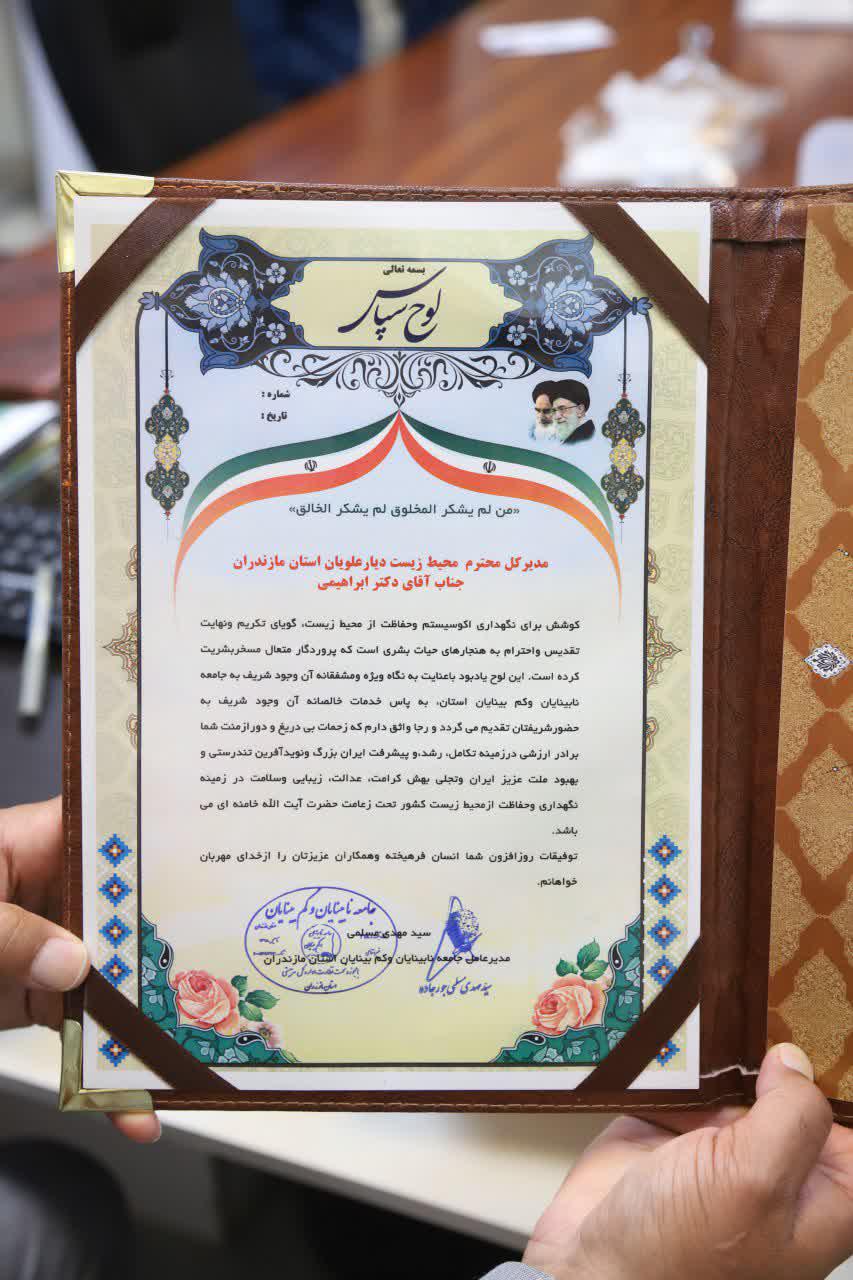 بسمه تعالی
لوح سپاس
شماره :
تاریخ :
«من لم یشکر المخلوق لم یشکر الخالق»
مدیرکل محترم محیط زیست دیارعلویان استان مازندران
جناب آقای دکتر ابراهیمی
کوشش برای نگهداری اکوسیستم وحفاظت از محیط زیست، گویای تکریم ونهایت
تقدیس واحترام به هنجارهای حیات بشری است که پروردگار متعال مسخربشریت
کرده است. این لوح یادبود باعنایت به نگاه ویژه ومشفقانه آن وجود شریف به جامعه
نابینایان وکم بینایان استان، به پاس خدمات خالصانه آن وجود شریف به
حضورشریفتان تقدیم می گردد و رجا واثق دارم که زحمات بی دریغ و دورازمنت شما
برادر ارزشی درزمینه تکامل، رشد،و پیشرفت ایران بزرگ ونویدآفرین تندرستی و
بهبود ملت عزیز ایران وتجلی بهش کرامت، عدالت، زیبایی وسلامت در زمینه
نگهداری وحفاظت ازمحیط زیست کشور تحت زعامت حضرت آیت الله خامنه ای می
باشد.
توفیقات روزافزون شما انسان فرهیخته وهمکاران عزیزتان را ازخدای مهربان
خواهانم.
جامعه نابینایان و کم بینایان
سید مهدی مسلمی
مدیرعامل جامعه نابینایان وکم بینایان استان مازندران
استان مازندران